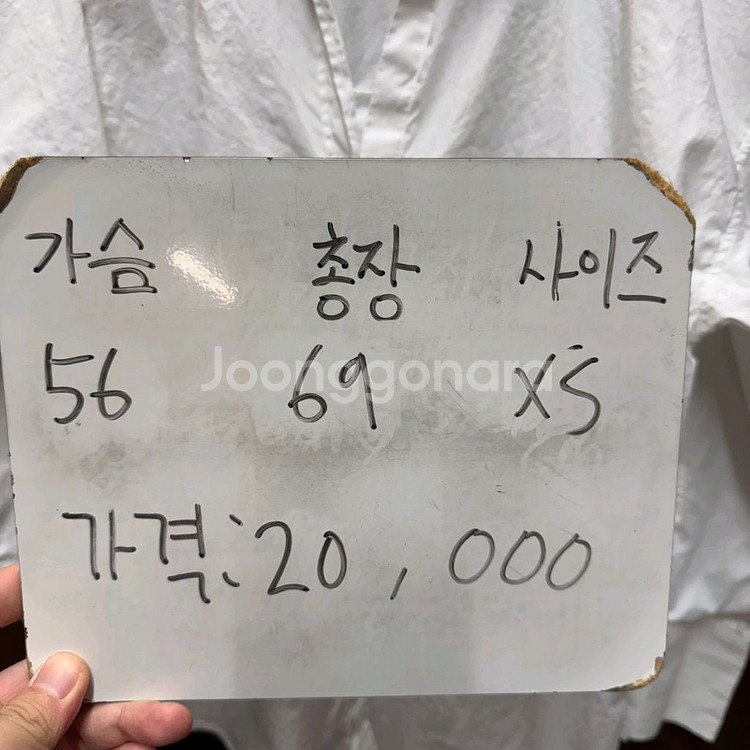 가슴 총장 사이즈
56 69 XS
Joonggonara
가격: 20,000